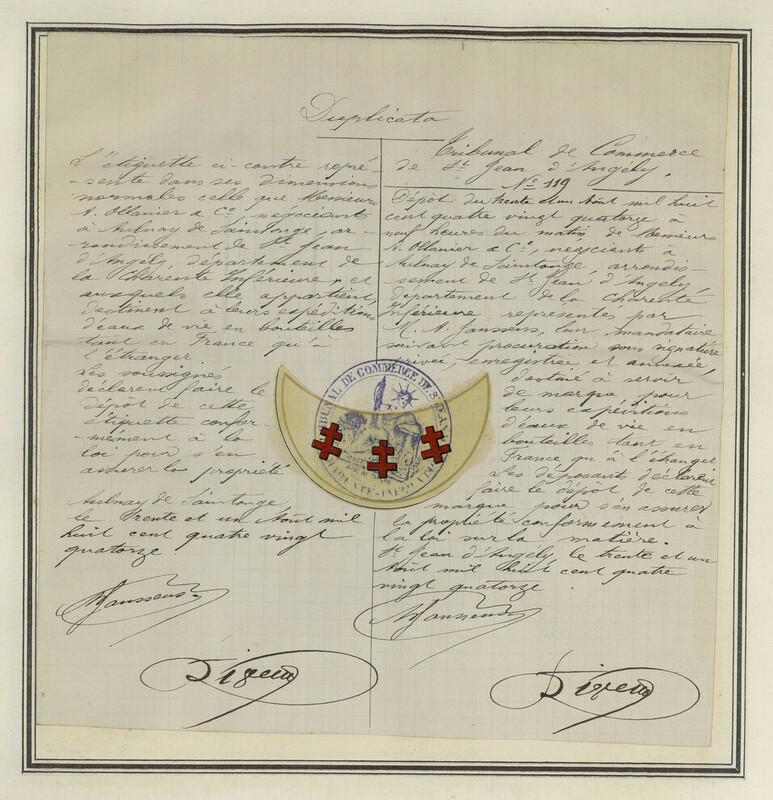 Duplicata
L'étiquette ci-contre repré-
-sente dans ses dimensions
normales celle que Messieurs
A. Ollanier & Cº, négociants
à Aulnay de Saintonge, ar-
-rondissement de St Jean
d'Angély département de
la Charente Inférieure, et
auxquels elle appartient,
destinent à leurs expéditions
d'eaux de vie en bouteilles
tant en France qu'à
l'étranger.
Les soussignés
déclarent faire le
dépôt de cette
étiquette confor-
-mément à la
loi pour s'en
assurer la propriété
Aulnay de Saintonge
le trente et un Août mil
huit cent quatre vingt
quatorze
Janssens
Tribunal de Commerce
de St Jean d'Angély.
Nº 119
Dépôt du trente et un Août mil huit
cent quatre vingt quatorze à
neuf heures du matin de Messieurs
A. Ollanier & Cº, négociants à
Aulnay de Saintonge, arrondis-
-sement de St Jean d'Angély,
département de la Charente
Inférieure représentés par
A. Janssens, leur mandataire
suivant procuration sous signature
privée, enregistrée et annexée,
destiné à servir
de marque pour
leurs expéditions
d'eaux de vie en
bouteilles tant en
France qu'à l'étranger
Les déposants déclarent
faire le dépôt de cette
marque pour s'en assurer
la propriété conformément à
la loi sur la matière.
St Jean d'Angély le trente et un
Août mil huit cent quatre
vingt quatorze.
Janssens
TRIBUNAL DE COMMERCE DE ST JEAN
CHARENTE-INFÉRIEURE